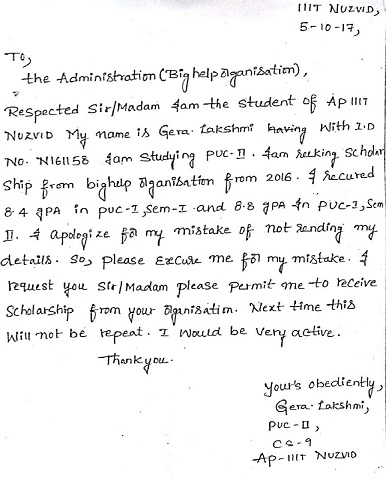 IIIT NUZVID,
5-10-17,
To,
the Administration (Big help organisation),
Respected Sir/Madam I am the student of AP IIIT
NUZVID My name is Gera. Lakshmi having With I.D
No. N161158 I am studying PUC-II. I am seeking Scholar
Ship from bighelp organisation from 2016. I secured
8.4 gPA in puc-I, Sem-I and 8.8 gPA In PUC-I, Sem
II. I apologize for my mistake of not sending my
details. So, please Excuse me for my mistake. I
request you Sir/Madam please permit me to receive
Scholarship from your organisation. Next time this
Will not be repeat. I Would be Very active.
Thank you.
Your's obediently,
Gera. Lakshmi,
PUC-II,
CS-9
AP-IIIT NUZVID